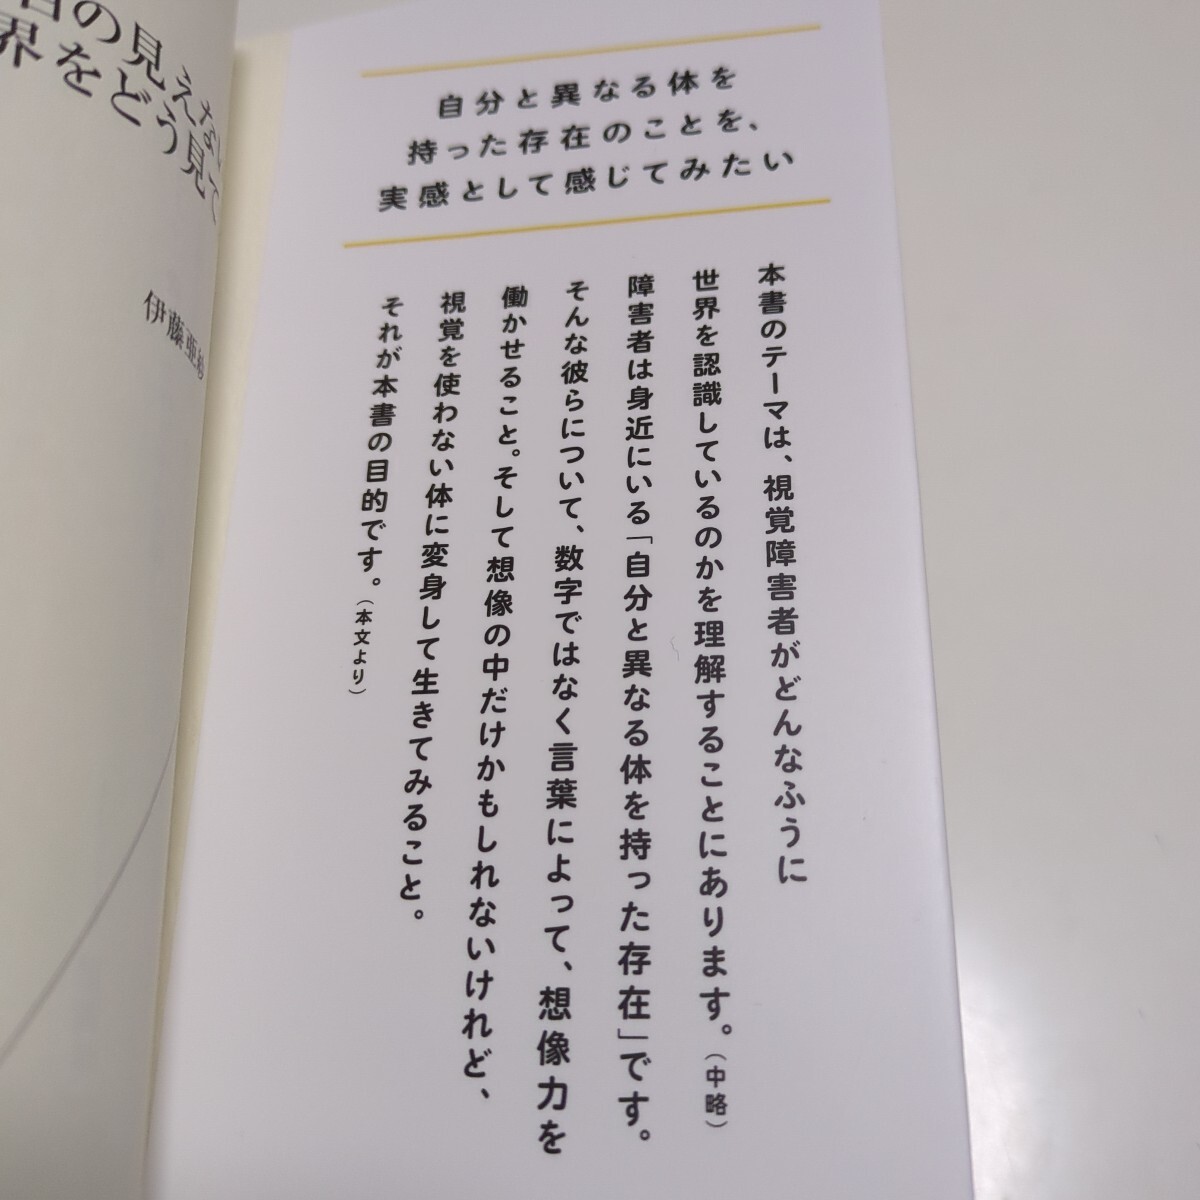 自分と異なる体を
持った存在のことを、
実感として感じてみたい
本書のテーマは、視覚障害者がどんなふうに
世界を認識しているのかを理解することにあります。（中略）
障害者は身近にいる「自分と異なる体を持った存在」です。
そんな彼らについて、数字ではなく言葉によって、想像力を
働かせること。そして想像の中だけかもしれないけれど、
視覚を使わない体に変身して生きてみること。
それが本書の目的です。（本文より）
目の見えない
界をどう見て
伊藤亜紗